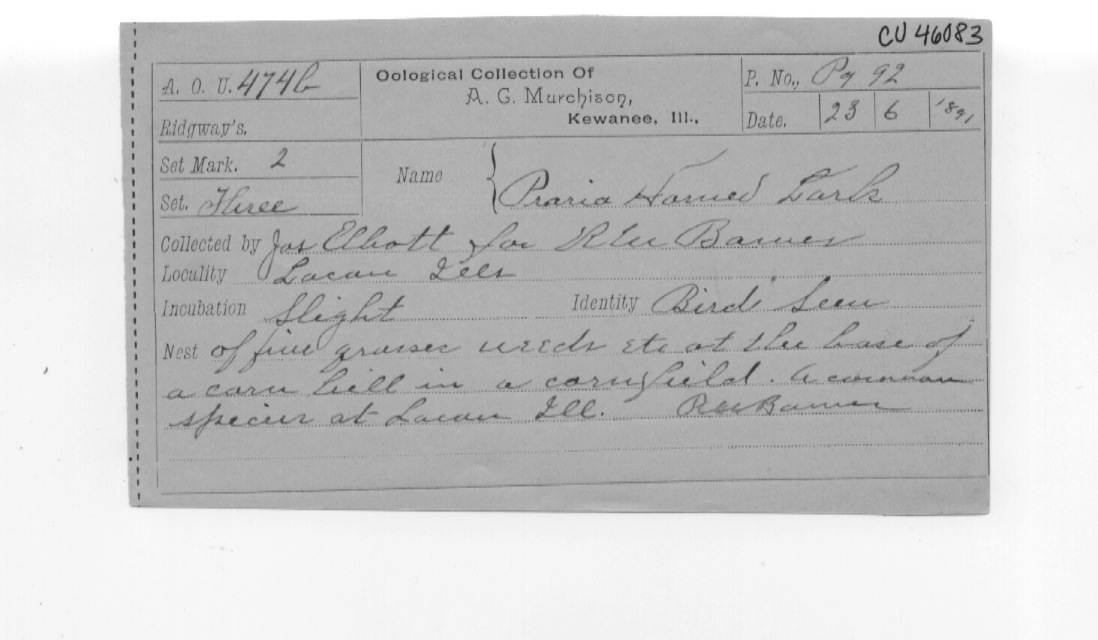 CU 46083
A. O. U. 474b
Oological Collection Of
A. G. Murchison,
Kewanee, Ill.,
P. No., Pg 92
Date. 23 6 1891
Ridgway's.
Set Mark. 2
Set. Three
Name Praria Horned Lark
Collected by Jas Elliott for R M Barnes
Locality Lacon Ills
Incubation Slight Identity Bird Seen
Nest of fine grasses weeds etc at the base of
a corn hill in a corn field. A common
species at Lacon Ill. R M Barnes